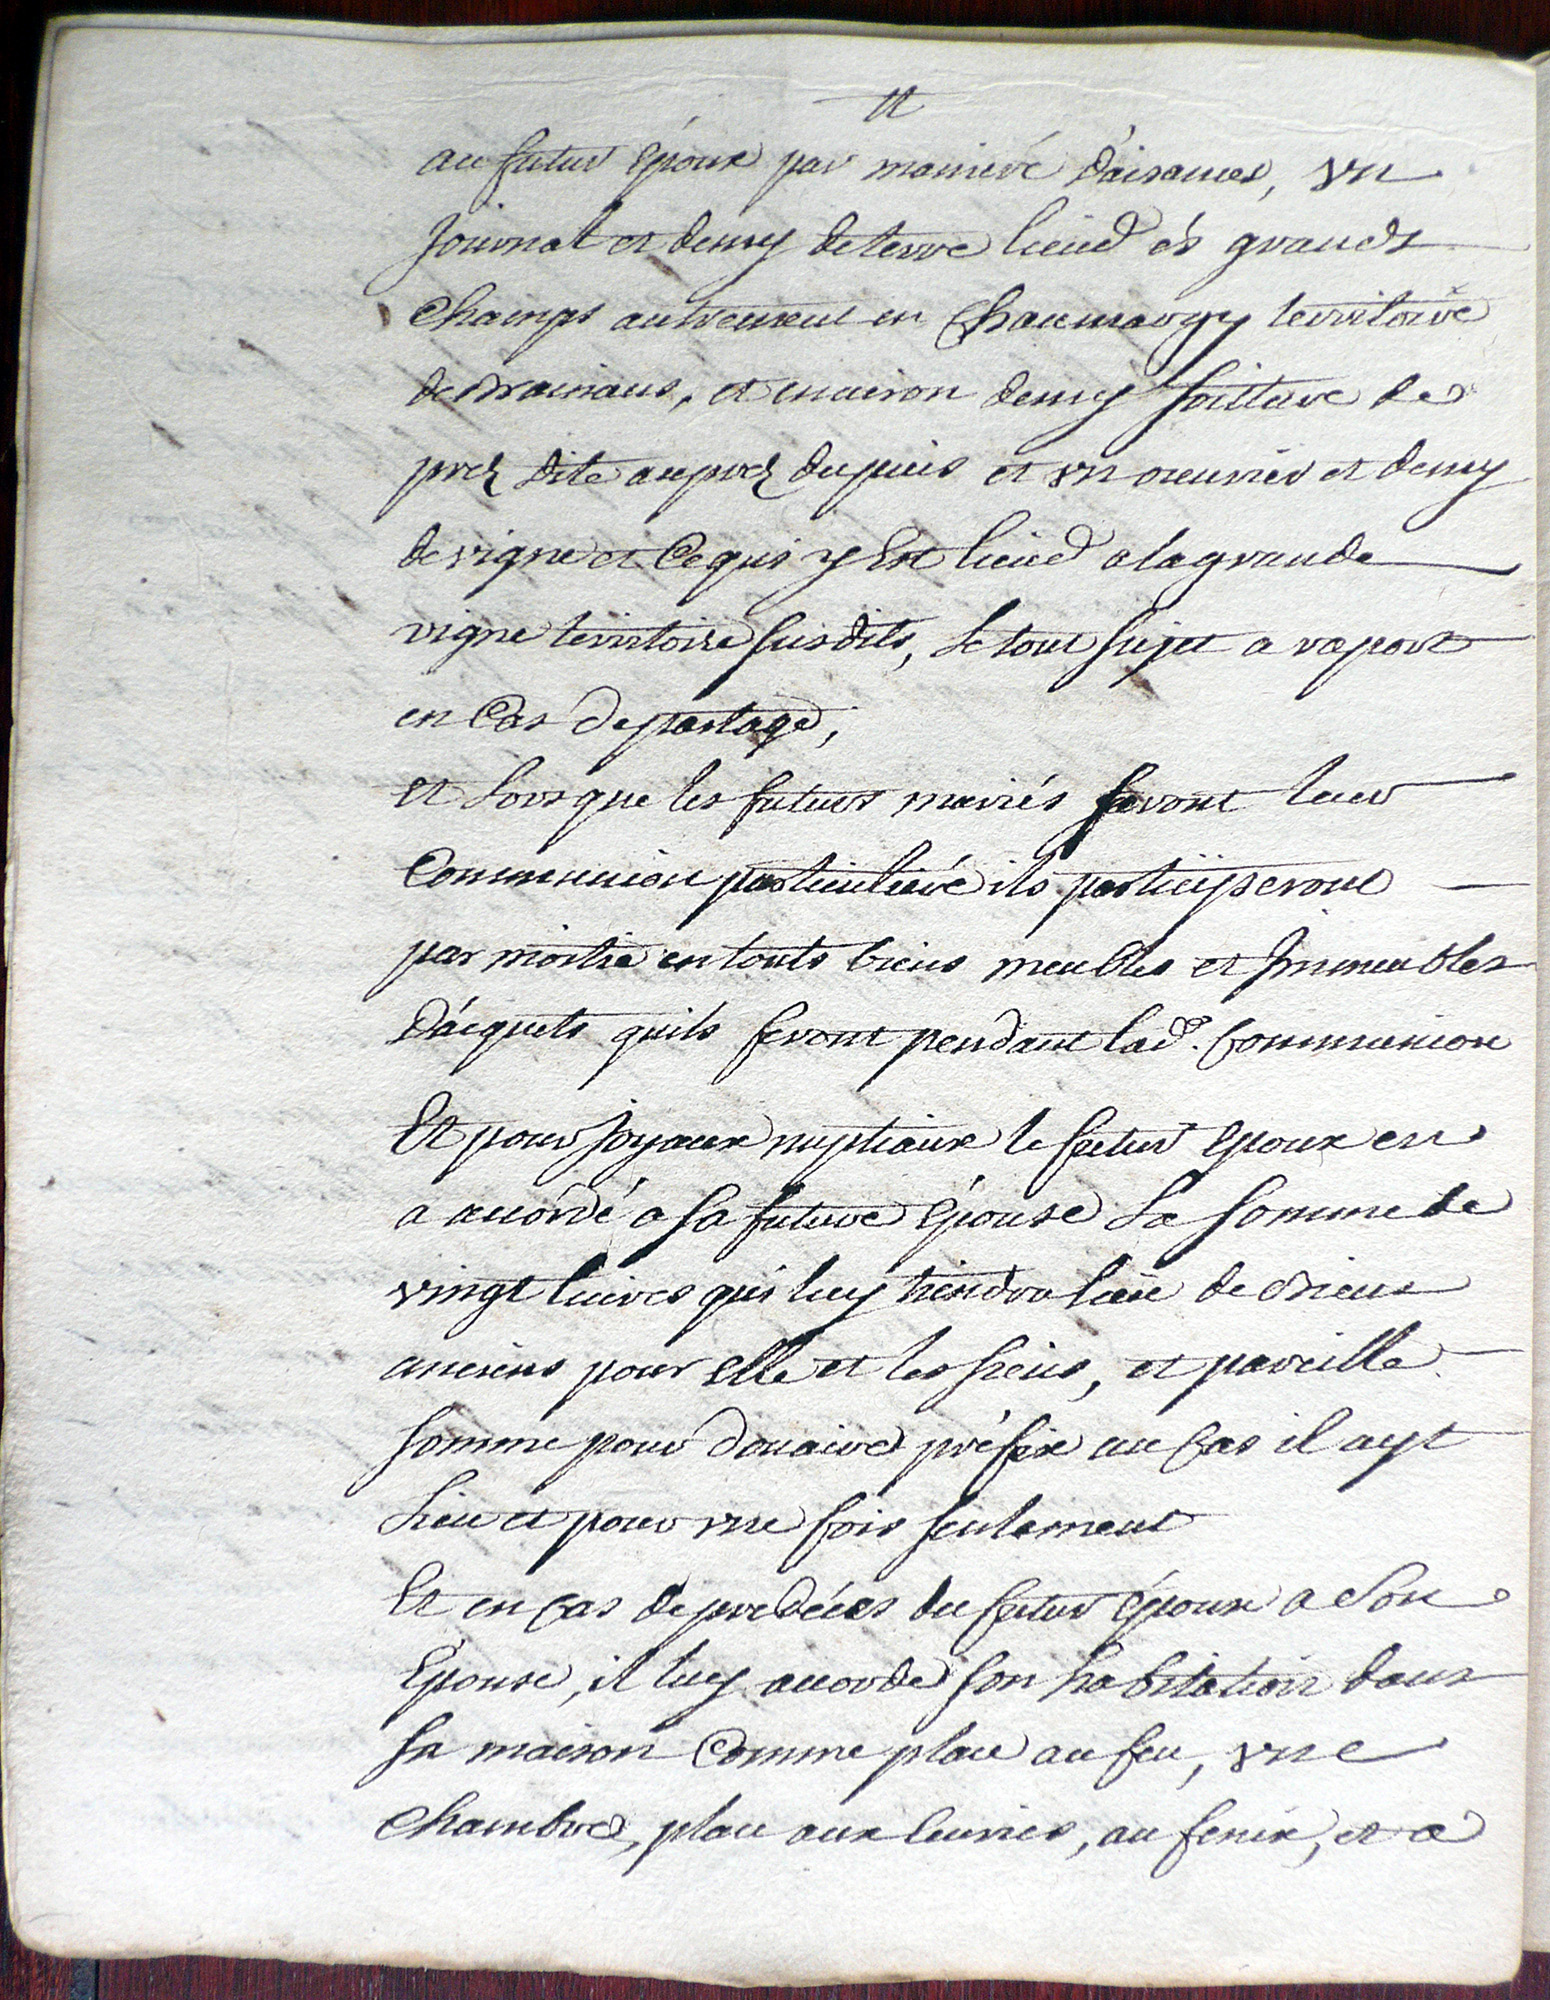 au futur époux par maniere d'aisances, vn
Journal et demy de terre lieud és grands
Champs autrement en Chaumargy territoire
et enuiron demy soitture de
prez dite auprez du puis et vn oeuurier et demy
de vigne et Ce qui y Est lieud a la grande
vigne territoire susdits, Le tout sujet a raport
en Cas de partage,
et Lorsque les futurs mariés feront leur
Communion particuliere ils participeront
par moitie en touts biens meubles et Immeubles
D'acquets quils feront pendant lad. Communion
Et pour joyaux nuptiaux le futur epoux en
a accórdé a sa future épouse La somme de
vingt liures qui luy tiendra lieu de biens
anciens pour Elle et les siens, et pareille
somme pour douaire préfix au Cas il ayt
Lieu et pour vne fois seulement
Et en Cas de predécés du futur époux a Son
Epouse, il luy accorde son habitation dans
sa maison Comme place au feu, vne
Chambre, place aux au et a